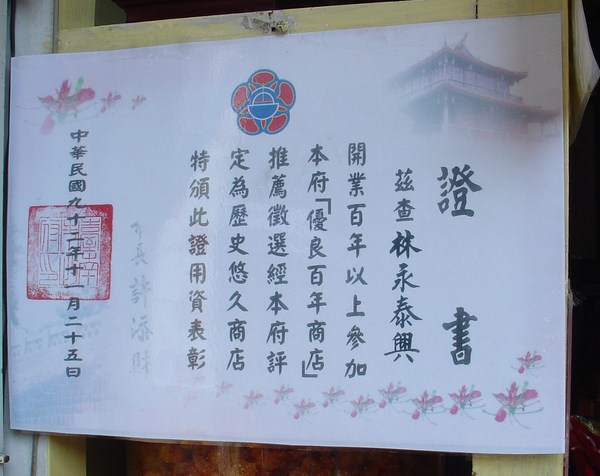 證書
茲查林永泰興
開業百年以上參加
本府「優良百年商店」
推薦徵選經本府評
定為歷史悠久商店
特頒此證用資表彰
市長許添財
中華民國九十二年十一月二十五日